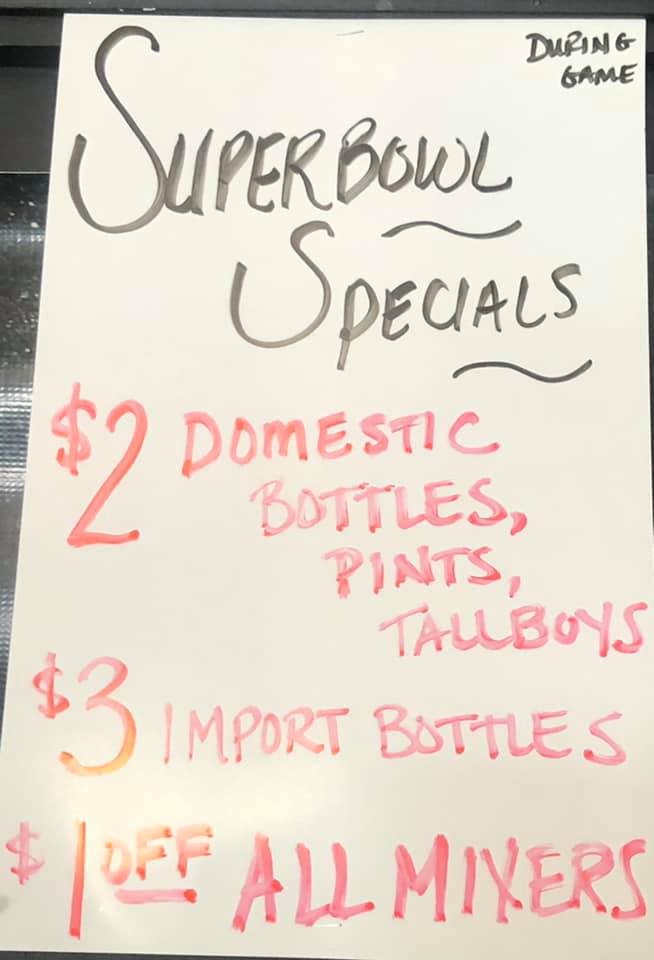 DURING
GAME
SUPERBOWL
SPECIALS
$2 DOMESTIC
BOTTLES,
PINTS,
TALLBOYS
$3 IMPORT BOTTLES
$1 OFF ALL MIXERS